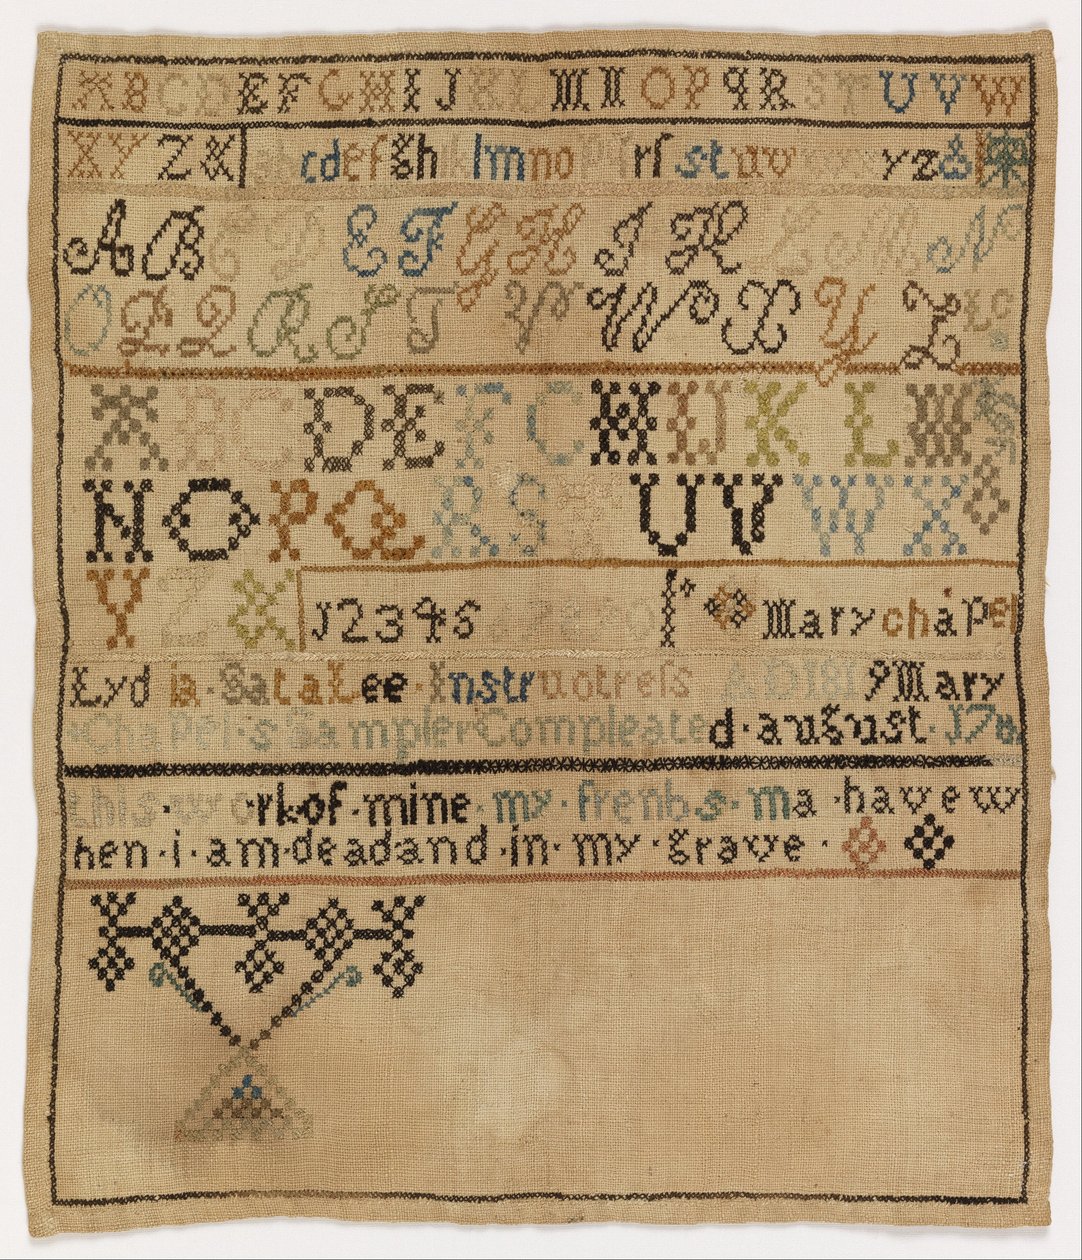 ABCDEFGHIJKLMNOPQRSTUVW
XYZ& abcdefghklmnopqrſstuvwxyz&
ABCDEFGHIKLMN
OPQRSTVWXYZ &c
ABCDEFGHIJKLM
NOPQRSTUVWX
YZ& J234567890 Mary chapel
Lydia·SataLee·Instructreſs A D 181 9 Mary
Chapel·s Sampler Compleated·august·178
this·work·of·mine·my·frenbs·ma·have w
hen·i·am·deadand·in·my·grave·